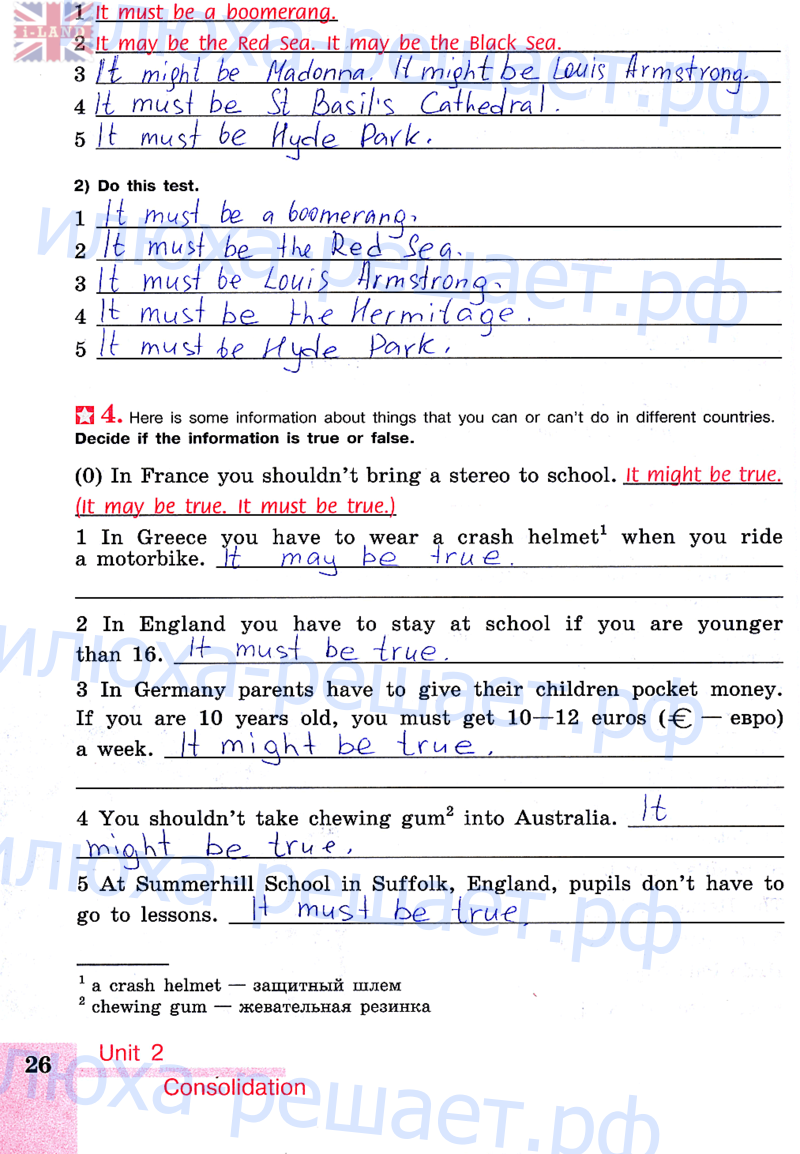 i-LAND
1 It must be a boomerang.
2 It may be the Red Sea. It may be the Black Sea.
3 It might be Madonna. It might be Louis Armstrong.
4 It must be St Basil's Cathedral.
5 It must be Hyde Park.
2) Do this test.
1 It must be a boomerang.
2 It must be the Red Sea.
3 It must be Louis Armstrong.
4 It must be the Hermitage.
5 It must be Hyde Park.
4. Here is some information about things that you can or can't do in different countries.
Decide if the information is true or false.
(0) In France you shouldn't bring a stereo to school. It might be true.
(It may be true. It must be true.)
1 In Greece you have to wear a crash helmet¹ when you ride
a motorbike. It may be true.
2 In England you have to stay at school if you are younger
than 16. It must be true.
3 In Germany parents have to give their children pocket money.
If you are 10 years old, you must get 10—12 euros (€ — евро)
a week. It might be true.
4 You shouldn't take chewing gum² into Australia. It
might be true.
5 At Summerhill School in Suffolk, England, pupils don't have to
go to lessons. It must be true.
¹ a crash helmet — защитный шлем
² chewing gum — жевательная резинка
26
Unit 2
Consolidation
илюха-решает.рф
илюха-решает.рф
илюха-решает.рф
илюха-решает.рф
илюха-решает.рф